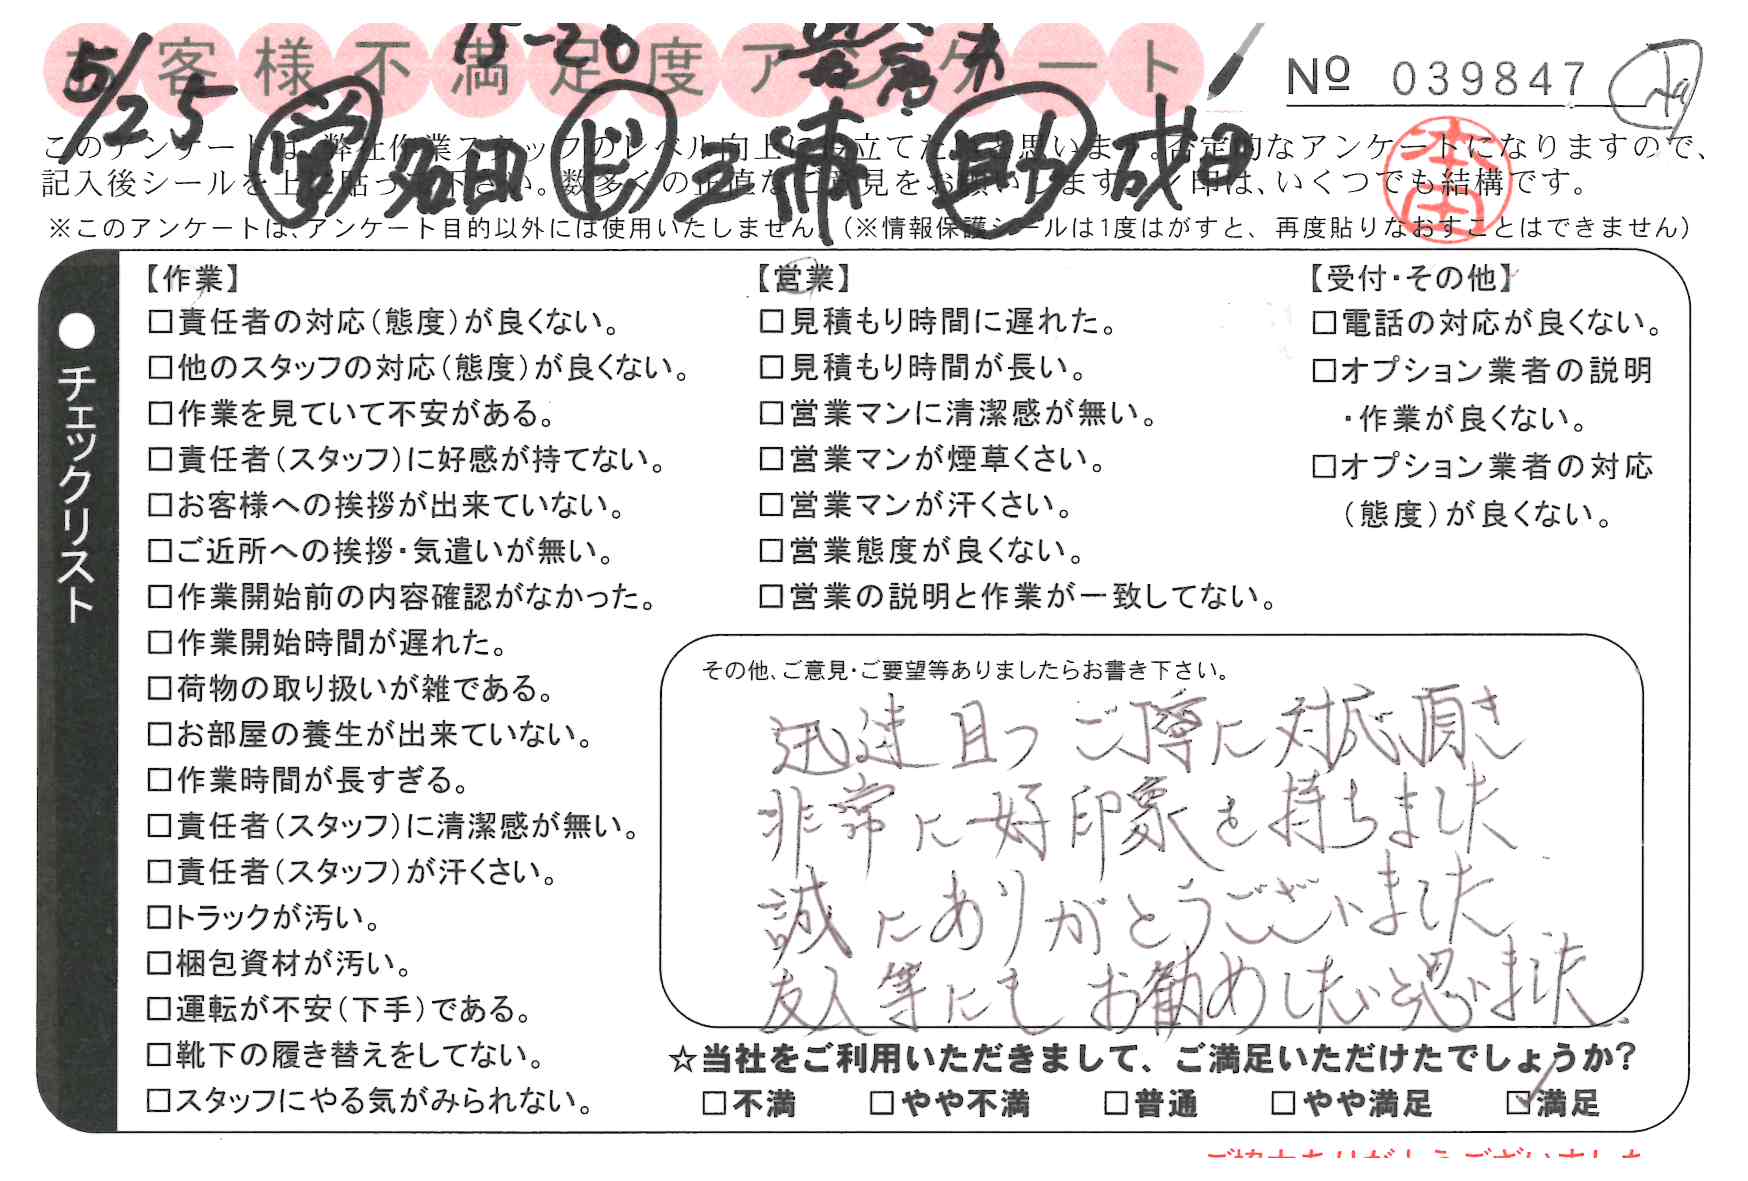 お客様不満足度アンケート
5/25
15-20
営 名田 ド 三浦 助 成
№ 039847
本田
このアンケートは、弊社作業スタッフのレベル向上に役立てたいと思います。否定的なアンケートになりますので、
記入後シールを上に貼って下さい。数多くの正直なご意見をお願いします。レ印は、いくつでも結構です。
※このアンケートは、アンケート目的以外には使用いたしません。（※情報保護シールは1度はがすと、再度貼りなおすことはできません）
●チェックリスト
【作業】
□責任者の対応（態度）が良くない。
□他のスタッフの対応（態度）が良くない。
□作業を見ていて不安がある。
□責任者（スタッフ）に好感が持てない。
□お客様への挨拶が出来ていない。
□ご近所への挨拶・気遣いが無い。
□作業開始前の内容確認がなかった。
□作業開始時間が遅れた。
□荷物の取り扱いが雑である。
□お部屋の養生が出来ていない。
□作業時間が長すぎる。
□責任者（スタッフ）に清潔感が無い。
□責任者（スタッフ）が汗くさい。
□トラックが汚い。
□梱包資材が汚い。
□運転が不安（下手）である。
□靴下の履き替えをしてない。
□スタッフにやる気がみられない。
【営業】
□見積もり時間に遅れた。
□見積もり時間が長い。
□営業マンに清潔感が無い。
□営業マンが煙草くさい。
□営業マンが汗くさい。
□営業態度が良くない。
□営業の説明と作業が一致してない。
【受付・その他】
□電話の対応が良くない。
□オプション業者の説明
・作業が良くない。
□オプション業者の対応
（態度）が良くない。
その他、ご意見・ご要望等ありましたらお書き下さい。
迅速且つご丁寧に対応頂き
非常に好印象を持ちました
誠にありがとうございました
友人等にもお勧めしたいと思いました.
☆当社をご利用いただきまして、ご満足いただけたでしょうか？
□不満 □やや不満 □普通 □やや満足 ☑満足
ご協力ありがとうございました